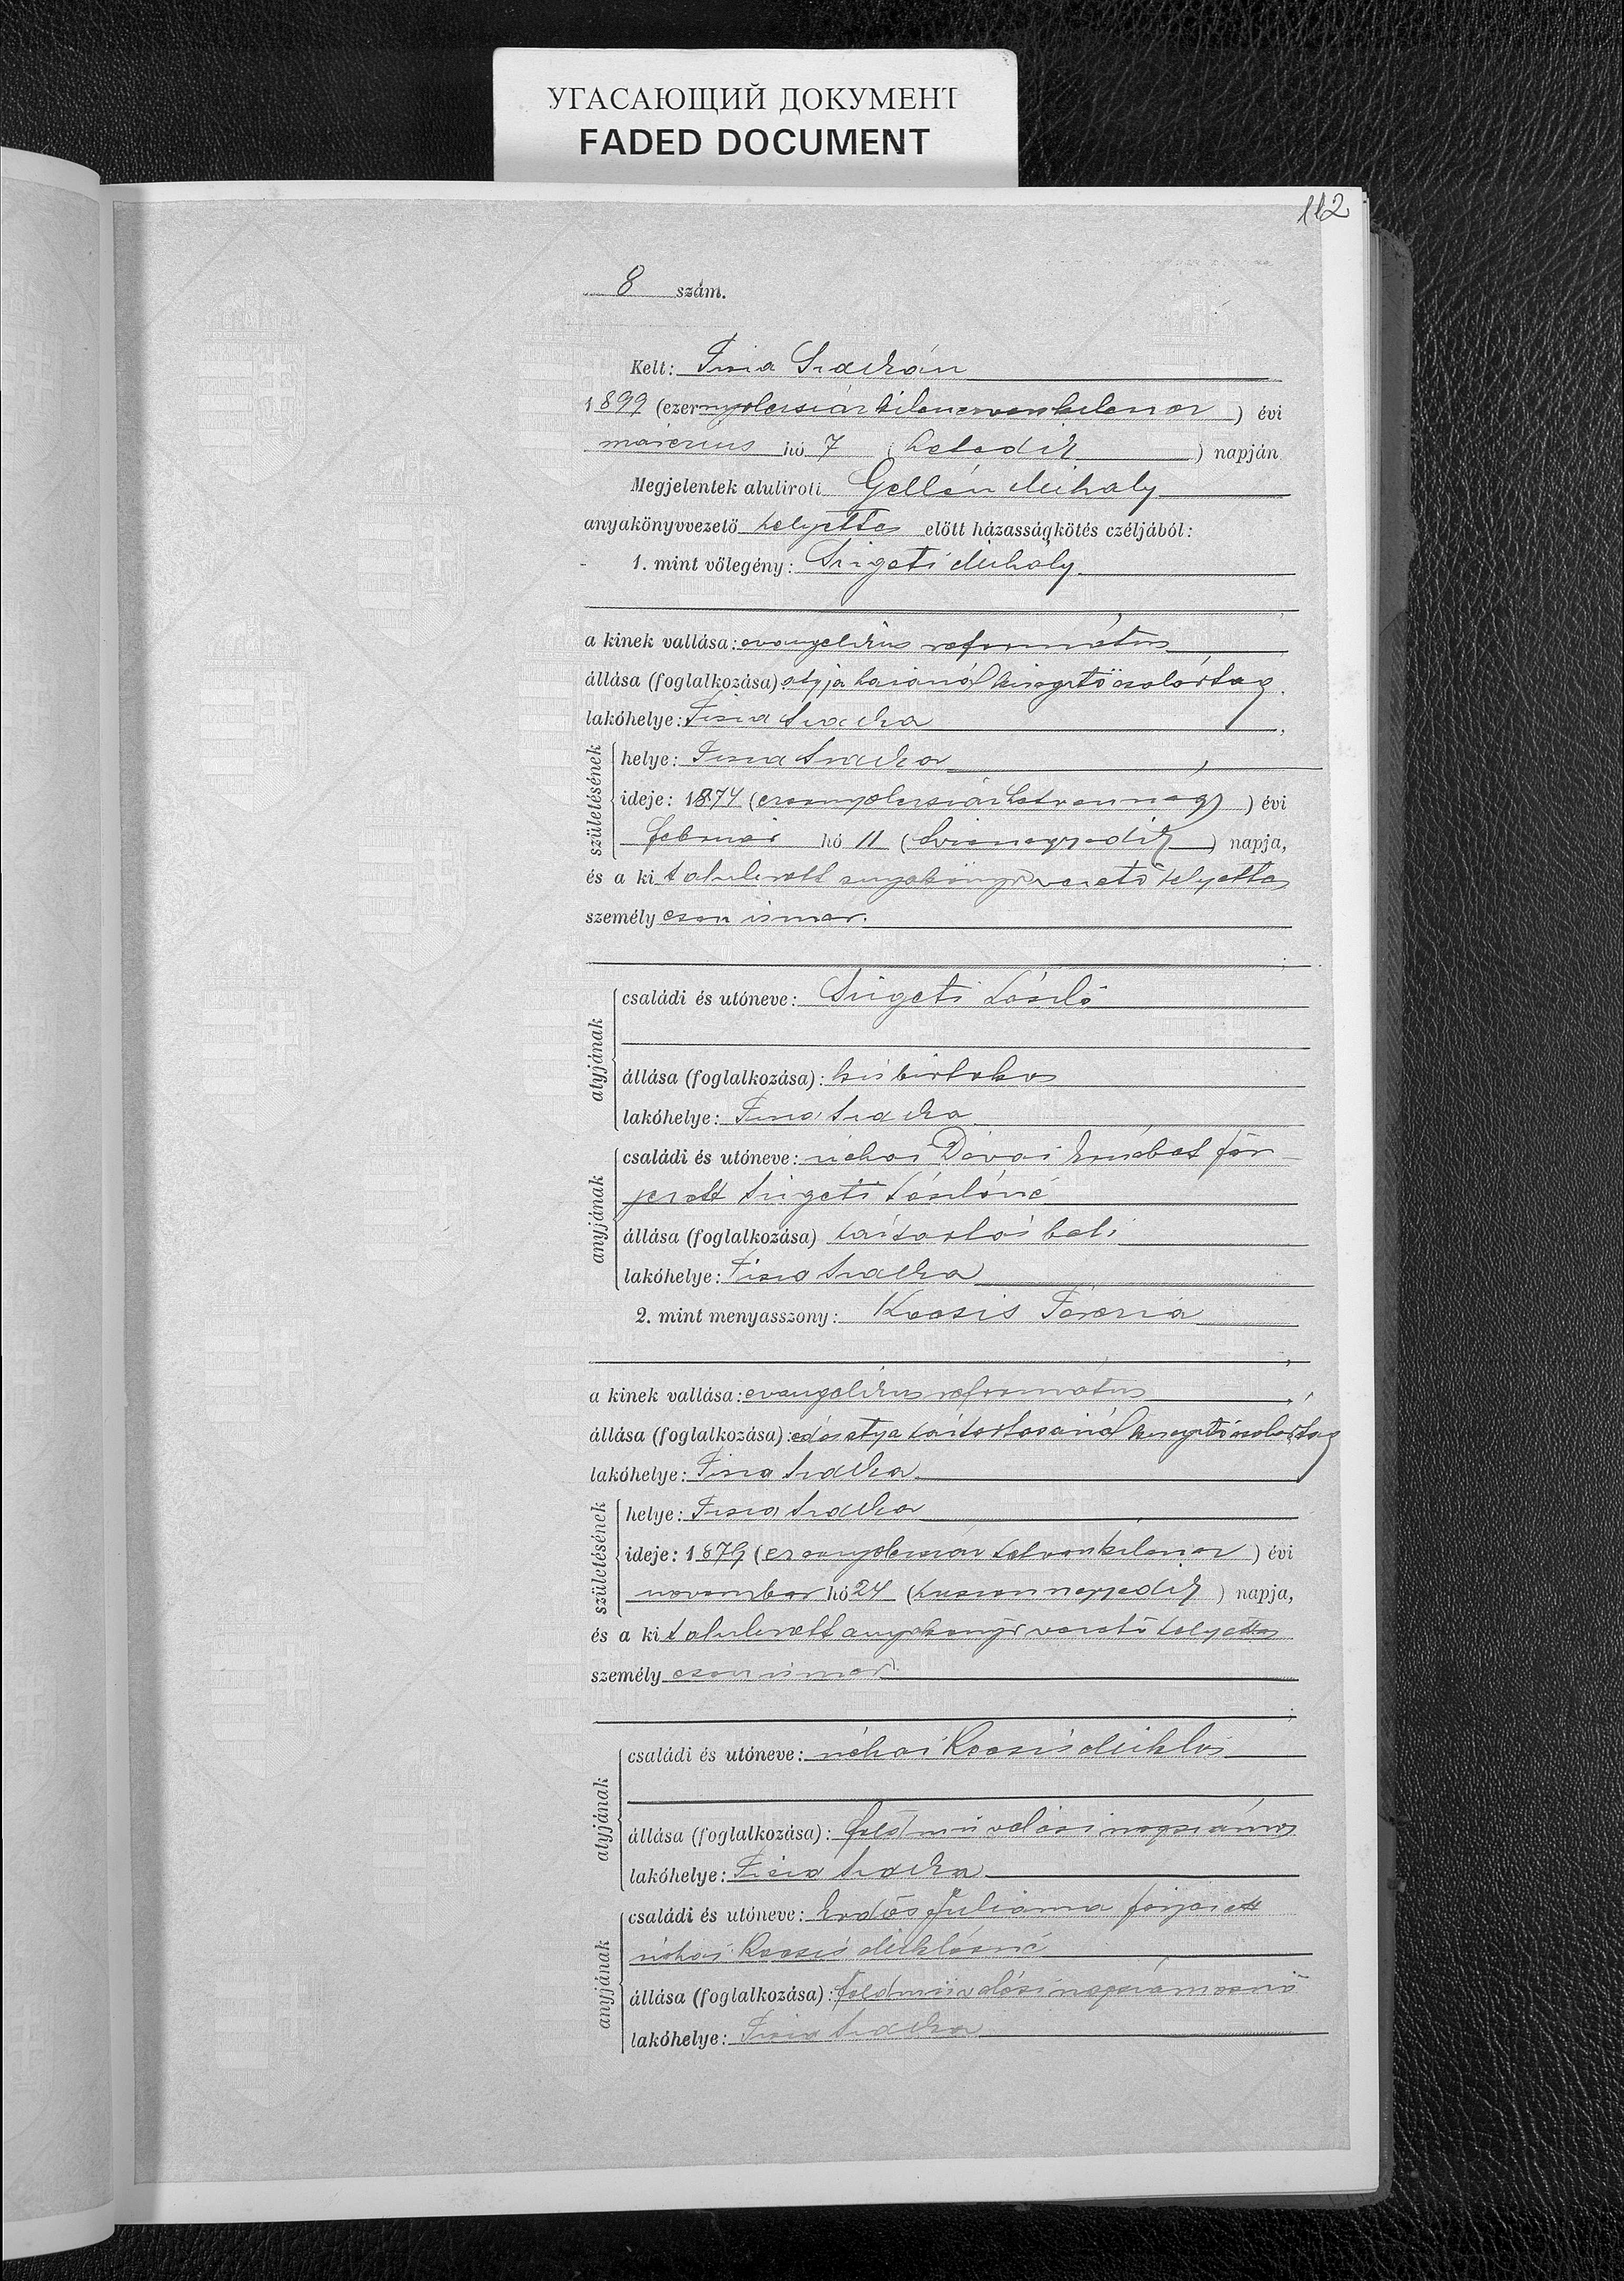 УГАСАЮЩИЙ ДОКУМЕНТ
FADED DOCUMENT
112
8 szám.
Kelt: Tisza Szalkán
1899 (ezernyolczszázkilenczvenkilencz) évi
márczius hó 7 (hetedik) napján
Megjelentek alulírott Gellén Mihály
anyakönyvvezető helyettes előtt házasságkötés czéljából:
1. mint vőlegény: Szigeti Mihály
a kinek vallása: evangelikus református
állása (foglalkozása) atyja házánál kisegítő családtag,
lakóhelye: Tisza Szalka,
születésének
helye: Tisza Szalka,
ideje: 1874 (ezernyolczszázhetvennégy) évi
február hó 11 ( ) napja,
és a kit alulírott anyakönyvvezető helyettes
személyesen ismer.
atyjának
családi és utóneve: Szigeti László
állása (foglalkozása): kisbirtokos
lakóhelye: Tisza Szalka
anyjának
családi és utóneve: néhai Dávai Erzsébet fér-
jezett Szigeti Lászlóné
állása (foglalkozása) háztartásbeli
lakóhelye: Tisza Szalka
2. mint menyasszony: Kocsis Terézia
a kinek vallása: evangelikus református,
állása (foglalkozása): édes atya háztartásánál kisegítő családtag
lakóhelye: Tisza Szalka
születésének
helye: Tisza Szalka
ideje: 1879 (ezernyolczszázhetvenkilencz) évi
november hó 24 (huszonnegyedik) napja,
és a kit alulírott anyakönyvvezető helyettes
személyesen ismer.
atyjának
családi és utóneve: néhai Kocsis Miklós
állása (foglalkozása): földművelési napszámos
lakóhelye: Tisza Szalka
anyjának
családi és utóneve: Erdős Juliánna férjezett
néhai Kocsis Miklósné
állása (foglalkozása): földművelési napszámosnő
lakóhelye: Tisza Szalka